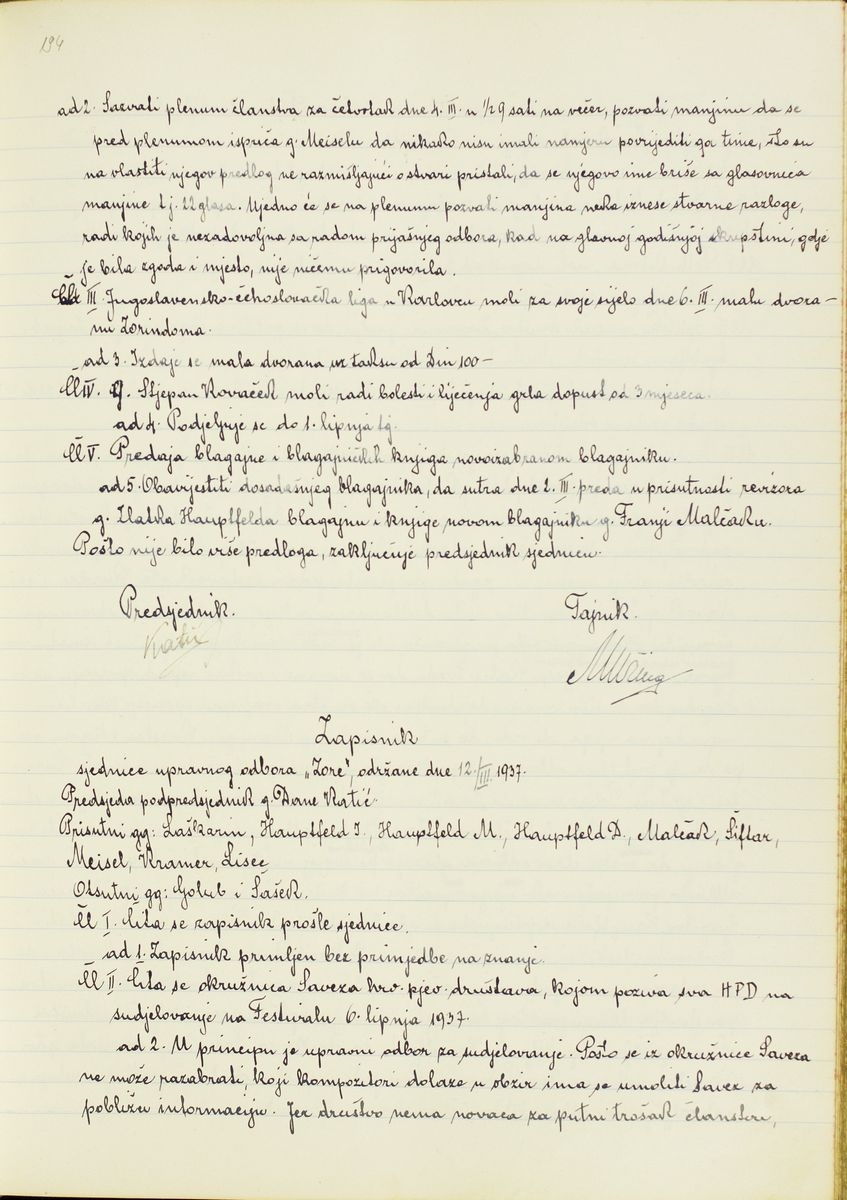 194
ad 2. Sazvati plenum članstva za četvrtak dne 4. III. u 1/2 9 sati na večer, pozvati manjinu da se
pred plenumom ispriča g. Meiselu da nikako nisu imali namjeru povrijediti ga time, što su
na vlastiti njegov predlog ne razmišljajući o stvari pristali, da se njegovo ime briše sa glasovnica
manjine t.j. 22 glasa. Ujedno će se na plenumu pozvati manjina neka iznese stvarne razloge,
radi kojih je nezadovoljna sa radom prijašnjeg odbora, kad na glavnoj godišnjoj skupštini, gdje
je bila zgoda i mjesto, nije ničemu prigovorila.
Čl III. Jugoslavensko-čehoslovačka liga u Karlovcu moli za svoje sijelo dne 6. III. malu dvora-
nu Zorindoma.
ad 3. Izdaje se mala dvorana uz taksu od Din 100-
Čl IV. g. Stjepan Kovaček moli radi bolesti i liječenja grla dopust od 3 mjeseca.
ad 4. Podjeljuje se do 1. lipnja tg.
Čl V. Predaja blagajne i blagajničkih knjiga novoizabranom blagajniku.
ad 5. Obavijestiti dosadašnjeg blagajnika, da sutra dne 2. III. preda u prisutnosti revizora
g. Zlatka Hauptfelda blagajnu i knjige novom blagajniku g. Franji Malčaku.
Pošto nije bilo više predloga, zaključuje predsjednik sjednicu.
Predsjednik. Tajnik.
Katić
Zapisnik
sjednice upravnog odbora „Zore", održane dne 12./III. 1937.
Predsjeda podpredsjednik g. Dane Katić.
Prisutni gg: Laškarin, Hauptfeld I., Hauptfeld M., Hauptfeld D., Malčak, Šiftar,
Meisel, Kramer, Lisec
Otsutni gg: Golub i Sašek.
Čl I. Čita se zapisnik prošle sjednice.
ad 1. Zapisnik primljen bez primjedbe na znanje.
Čl II. Čita se okružnica Saveza hrv. pjev. društava, kojom poziva sva HPD na
sudjelovanje na Festivalu 6. lipnja 1937.
ad 2. U principu je upravni odbor za sudjelovanje. Pošto se iz okružnice Saveza
ne može razabrati, koji kompozitori dolaze u obzir ima se umoliti Savez za
pobližu informaciju. Jer društvo nema novaca za putni trošak članstvu,